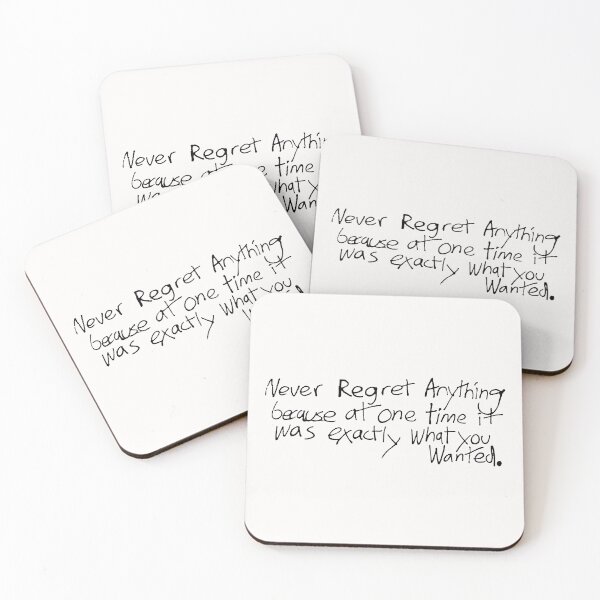 Never Regret Anythi
because at one time
what you
Never Regret Anything
because at one time it
was exactly what you
Wanted.
Never Regret Anything
because at one time it
was exactly what you
Never Regret Anything
because at one time it
was exactly what you
Wanted.